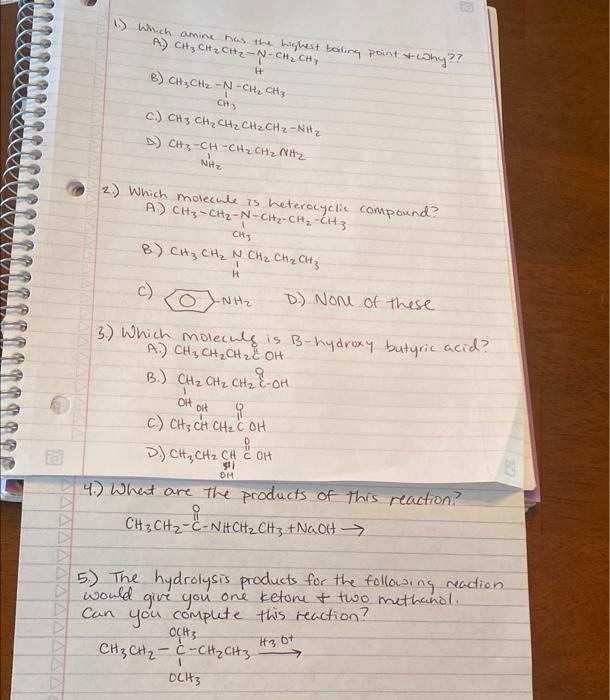 1.) Which amine has the highest boiling point + why??
A) CH3 CH2 CH2 - N - CH2 CH3
H
B) CH3CH2 - N - CH2 CH3
CH3
C.) CH3 CH2 CH2 CH2 CH2 - NH2
D) CH3 - CH - CH2 CH2 NH2
NH2
2.) Which molecule is heterocyclic compound?
A) CH3 - CH2 - N - CH2 - CH2 - CH3
CH3
B) CH3 CH2 N CH2 CH2 CH3
H
C) -NH2 D.) None of these
3.) Which molecule is B-hydroxy butyric acid?
O
A.) CH3 CH2 CH2 C OH
O
B.) CH2 CH2 CH2 C-OH
OH
OH O
C) CH3 CH CH2 C OH
O
D.) CH3 CH2 CH C OH
OH
4.) What are the products of this reaction?
O
CH3 CH2 - C - NHCH2 CH3 + NaOH →
5.) The hydrolysis products for the following reaction
would give you one ketone + two methanol.
Can you complete this reaction?
OCH3
CH3 CH2 - C - CH2CH3 H3O+ →
OCH3